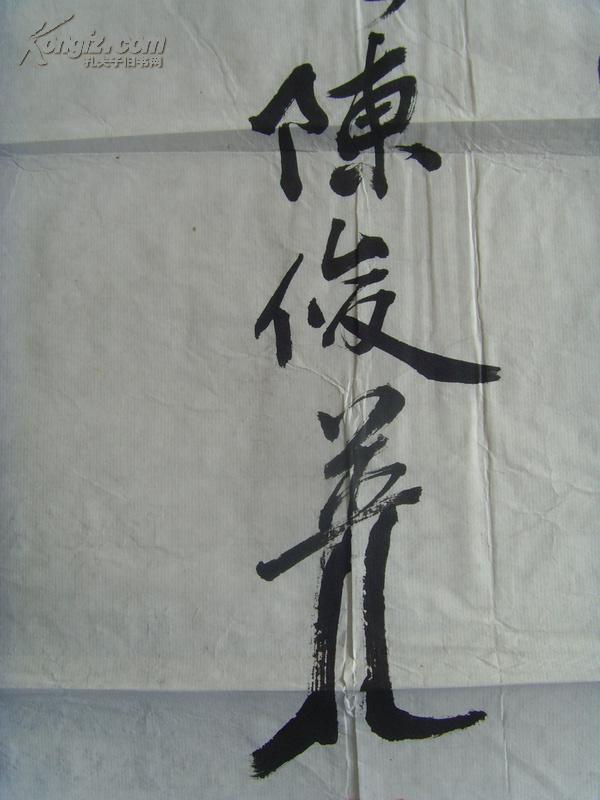 Kongfz.com
孔夫子旧书网
陳俊英